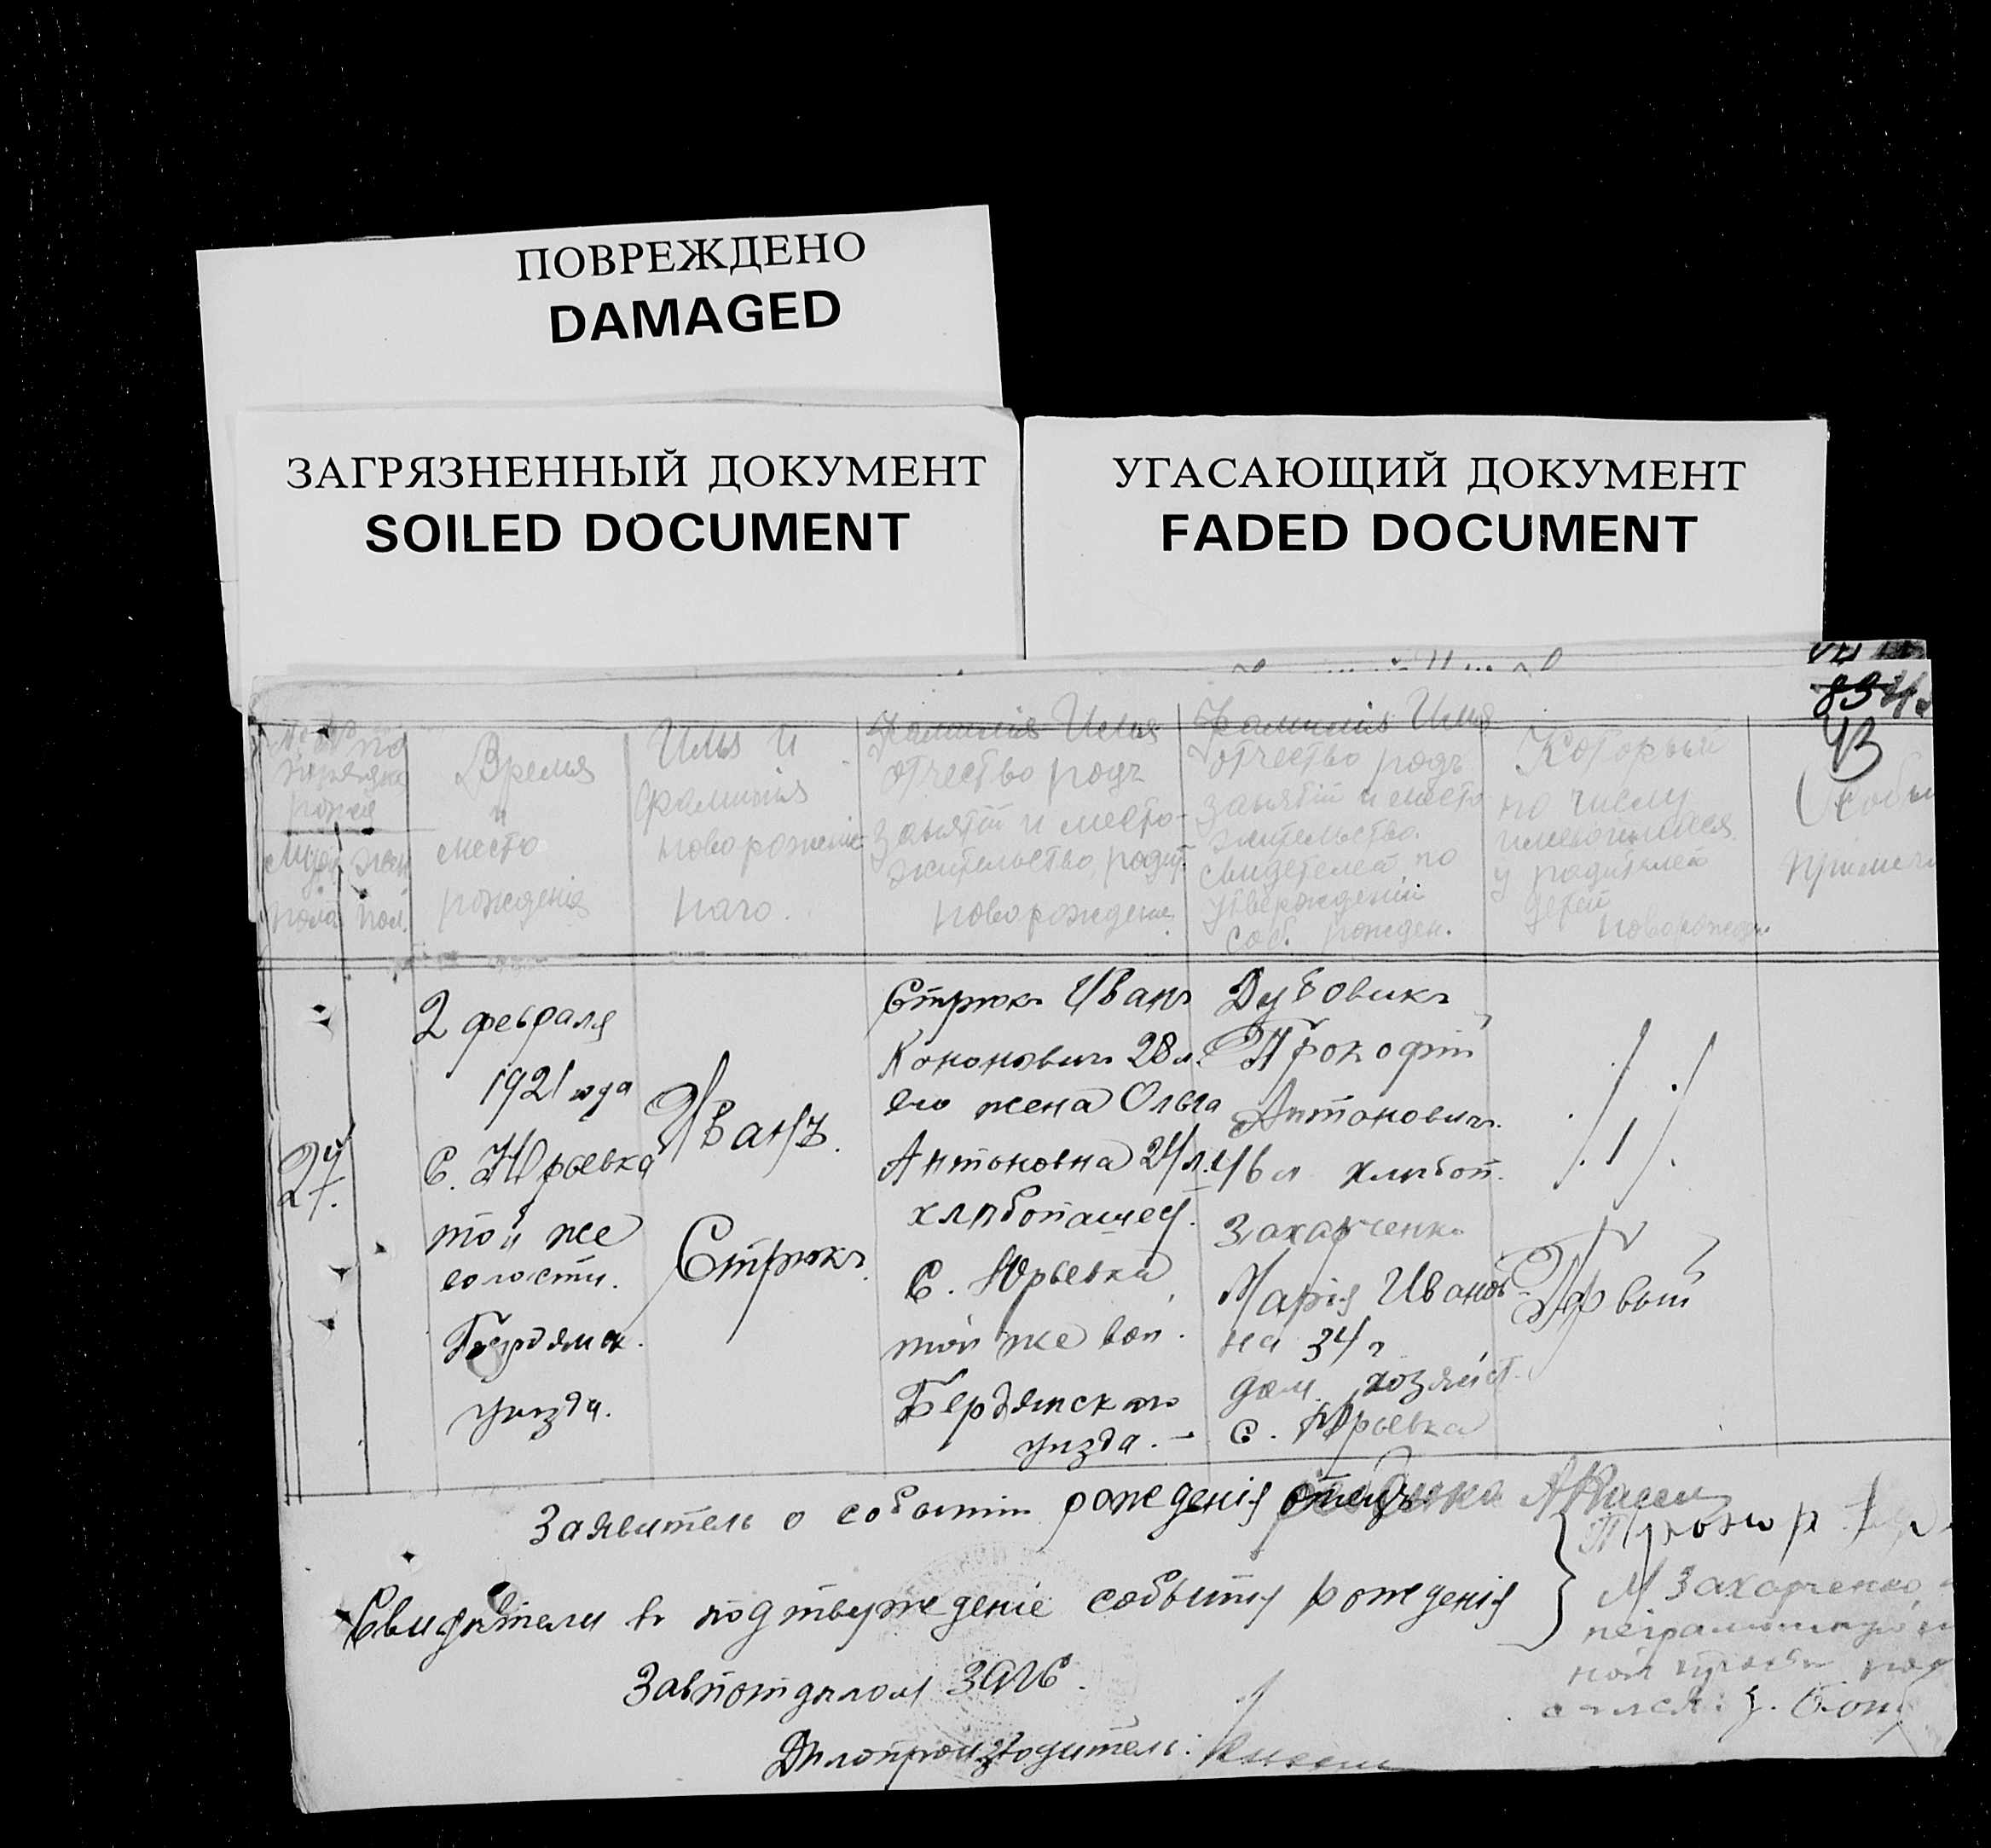 ПОВРЕЖДЕНО
DAMAGED
ЗАГРЯЗНЕННЫЙ ДОКУМЕНТ
SOILED DOCUMENT
УГАСАЮЩИЙ ДОКУМЕНТ
FADED DOCUMENT
83
43
по
порядка
рожд
муж.
пола
жен
пол.
Время
и
место
рожденія
Имя и
фамилія
новорожден
наго.
Фамилія Имя
отчество родъ
занятій и место-
жительство родит.
новорожден.
Фамилія Имя
отчество родъ
занятій и место
жительство
свидетелей по
утвержденій
соб. рожден.
Который
по числу
имеющихся
у родителей
детей
новорожден.
Особы
примеч
24.
2 февраля
1921 года
С. Юрьевка
той же
волости.
Бердянск.
уѣзда.
Иванъ.
Стрюкъ.
Стрюкъ Иванъ
Кононовичъ 28 л.
его жена Ольга
Антоновна 24 л.
хлѣбопашец.
С. Юрьевка
той же вол.
Бердянскаго
уѣзда. –
Дубовикъ
Прокофій
Антоновичъ.
46 л хлѣбоп.
Захарченко
Марія Иванов-
на 34 г
дом. хозяйст.
С. Юрьевка
1
Первый
Заявитель о событіи рожденія отецъ
Свидѣтели въ подтвержденіе событія рожденія
М Захарченко
Завпотдѣлом ЗАГС.
Дѣлопроизводитель: